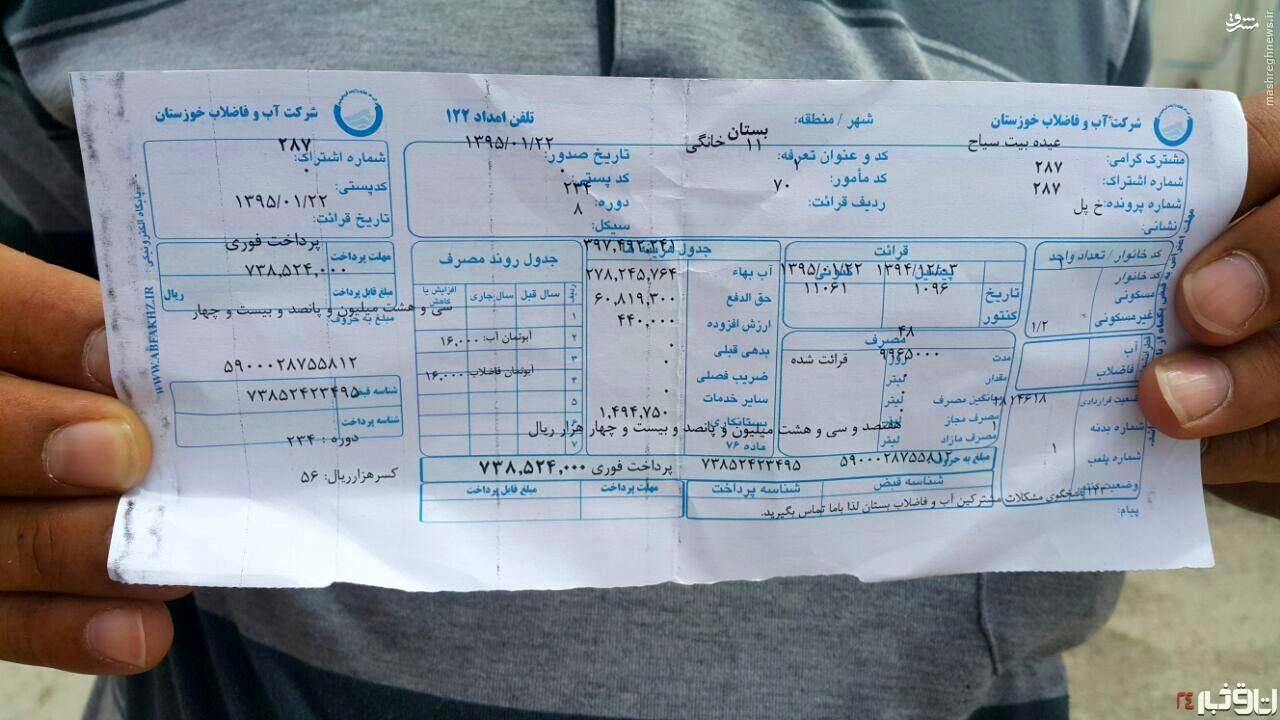 مشرق
mashreghnews.ir
شرکت آب و فاضلاب خوزستان
عبده بیت سیاح
مشترک گرامی:
شماره اشتراک: ۲۸۷
شماره پرونده: ۲۸۷
نشانی: خ پل
شهر / منطقه: بستان
کد و عنوان تعرفه: ۱۱ خانگی
کد مأمور: ۲
ردیف قرائت: ۷۰
تلفن امداد ۱۲۲
تاریخ صدور: ۱۳۹۵/۰۱/۲۲
کد پستی: ۰
دوره: ۲۳۴
سیکل: ۸
شرکت آب و فاضلاب خوزستان
شماره اشتراک: ۲۸۷
کدپستی: ۰
تاریخ قرائت: ۱۳۹۵/۰۱/۲۲
کد خانوار / تعداد واحد
کد خانوار ۱
مسکونی
غیرمسکونی
۱/۲
آب
فاضلاب
وضعیت قراردادی
شماره بدنه
شماره پلمب
۱
پیام:
۱۲۲ پاسخگوی مشکلات مشترکین آب و فاضلاب بستان لذا باما تماس بگیرید.
قرائت
تاریخ ۱۳۹۴/۱۲/۰۳ ۱۳۹۵/۰۱/۲۲
کنتور ۱۰۹۶ ۱۱۰۶۱
مصرف
مدت ۴۸ روز
مقدار ۹۹۶۵۰۰۰ لیتر
قرائت شده
میانگین مصرف لیتر
مصرف مجاز لیتر
مصرف مازاد لیتر
جدول هزینه ها
آب بهاء ۳۹۷,۴۹۲,۲۴۱
حق الدفع ۲۷۸,۲۴۵,۷۶۴
ارزش افزوده ۶۰,۸۱۹,۳۰۰
بدهی قبلی ۴۴۰,۰۰۰
ضریب فصلی ۰
سایر خدمات ۰
بستانکاری ۰
ماده ۷۶ ۱,۴۹۴,۷۵۰
جدول روند مصرف
ردیف سال قبل سال جاری افزایش یا کاهش
۱
۲
۳
۴
۵
۷
آبونمان آب: ۱۶,۰۰۰
آبونمان فاضلاب: ۱۶,۰۰۰
هفتصد و سی و هشت میلیون و پانصد و بیست و چهار هزار ریال
مبلغ به حروف
۵۹۰۰۰۲۸۷۵۵۸۱۲ ۷۳۸۵۲۴۲۳۴۹۵ پرداخت فوری ۷۳۸,۵۲۴,۰۰۰
شناسه قبض شناسه پرداخت مهلت پرداخت مبلغ قابل پرداخت
پرداخت فوری
مهلت پرداخت
۷۳۸,۵۲۴,۰۰۰
مبلغ قابل پرداخت ریال
مبلغ به حروف
سی و هشت میلیون و پانصد و بیست و چهار
۵۹۰۰۰۲۸۷۵۵۸۱۲
شناسه قبض
۷۳۸۵۲۴۲۳۴۹۵
شناسه پرداخت
دوره : ۲۳۴
کسرهزارریال: ۵۶
پایگاه الکترونیکی: WWW.ABFAKHZ.IR
اتاق خبر ۲۴